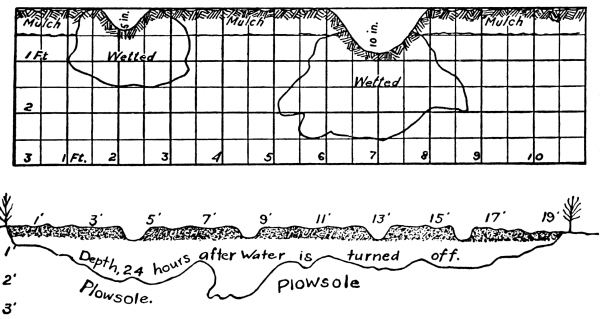 5 in.
10 in.
Mulch Mulch Mulch
1 Ft Wetted
Wetted
2
3 1 Ft. 2 3 4 5 6 7 8 9 10
1' 3' 5' 7' 9' 11' 13' 15' 17' 19'
1' Depth, 24 hours after Water is turned off.
2' Plowsole. Plowsole
3'